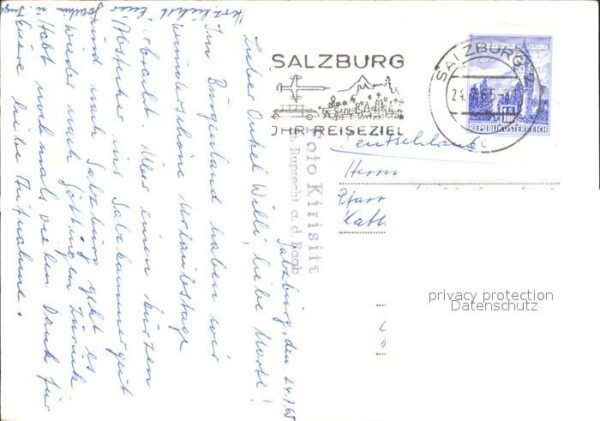 Salzburg, den 24.7.65
Lieber Onkel Willi, liebe Marle!
Im Burgenland haben wir
wunderschöne Urlaubstage
verbracht. Über einen kurzen
Abstecher ins Salzkammergut
und nach Salzburg geht es
wieder nach Göttingen zurück.
Habt nochmals vielen Dank für
Eure liebe Aufnahme.
Herzlichst Eure
Joachim u.
SALZBURG
IHR REISEZIEL
SALZBURG 2
REPUBLIK ÖSTERREICH
Deutschland
Herrn
Pfarr
Kath
Foto Kirisitz
St. Ruprecht a. d. Raab
privacy protection
Datenschutz